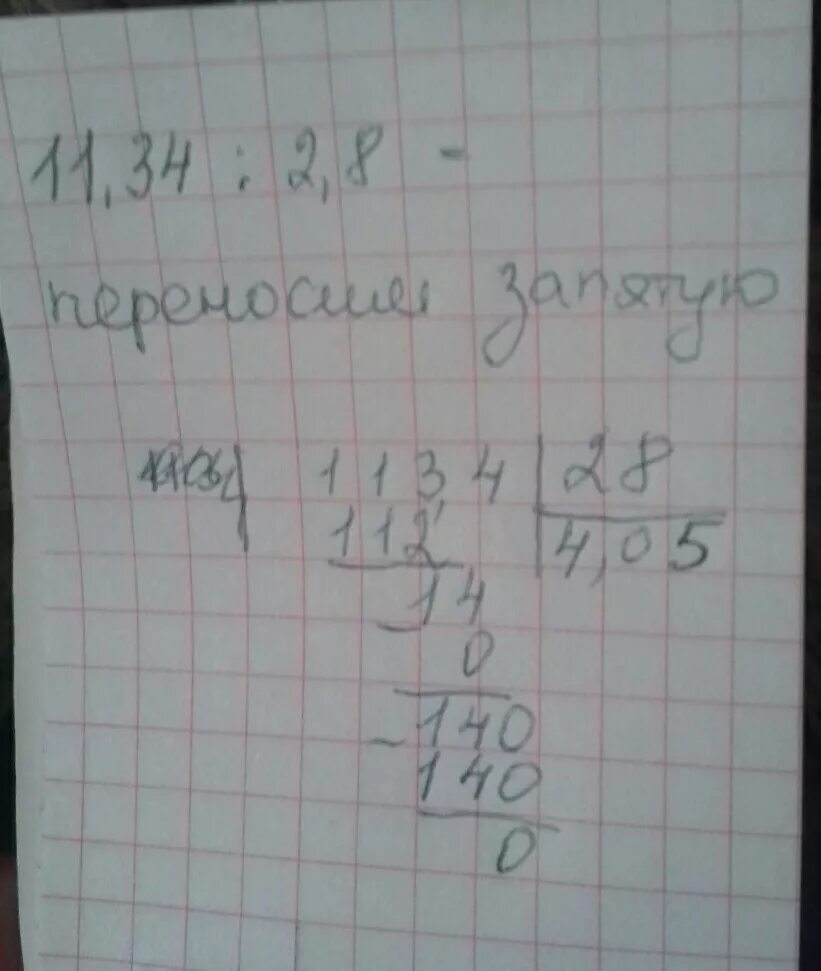 11,34 : 2,8 -
переносим запятую
113,4 | 28
112 | 4,05
14
- 0
- 140
140
0